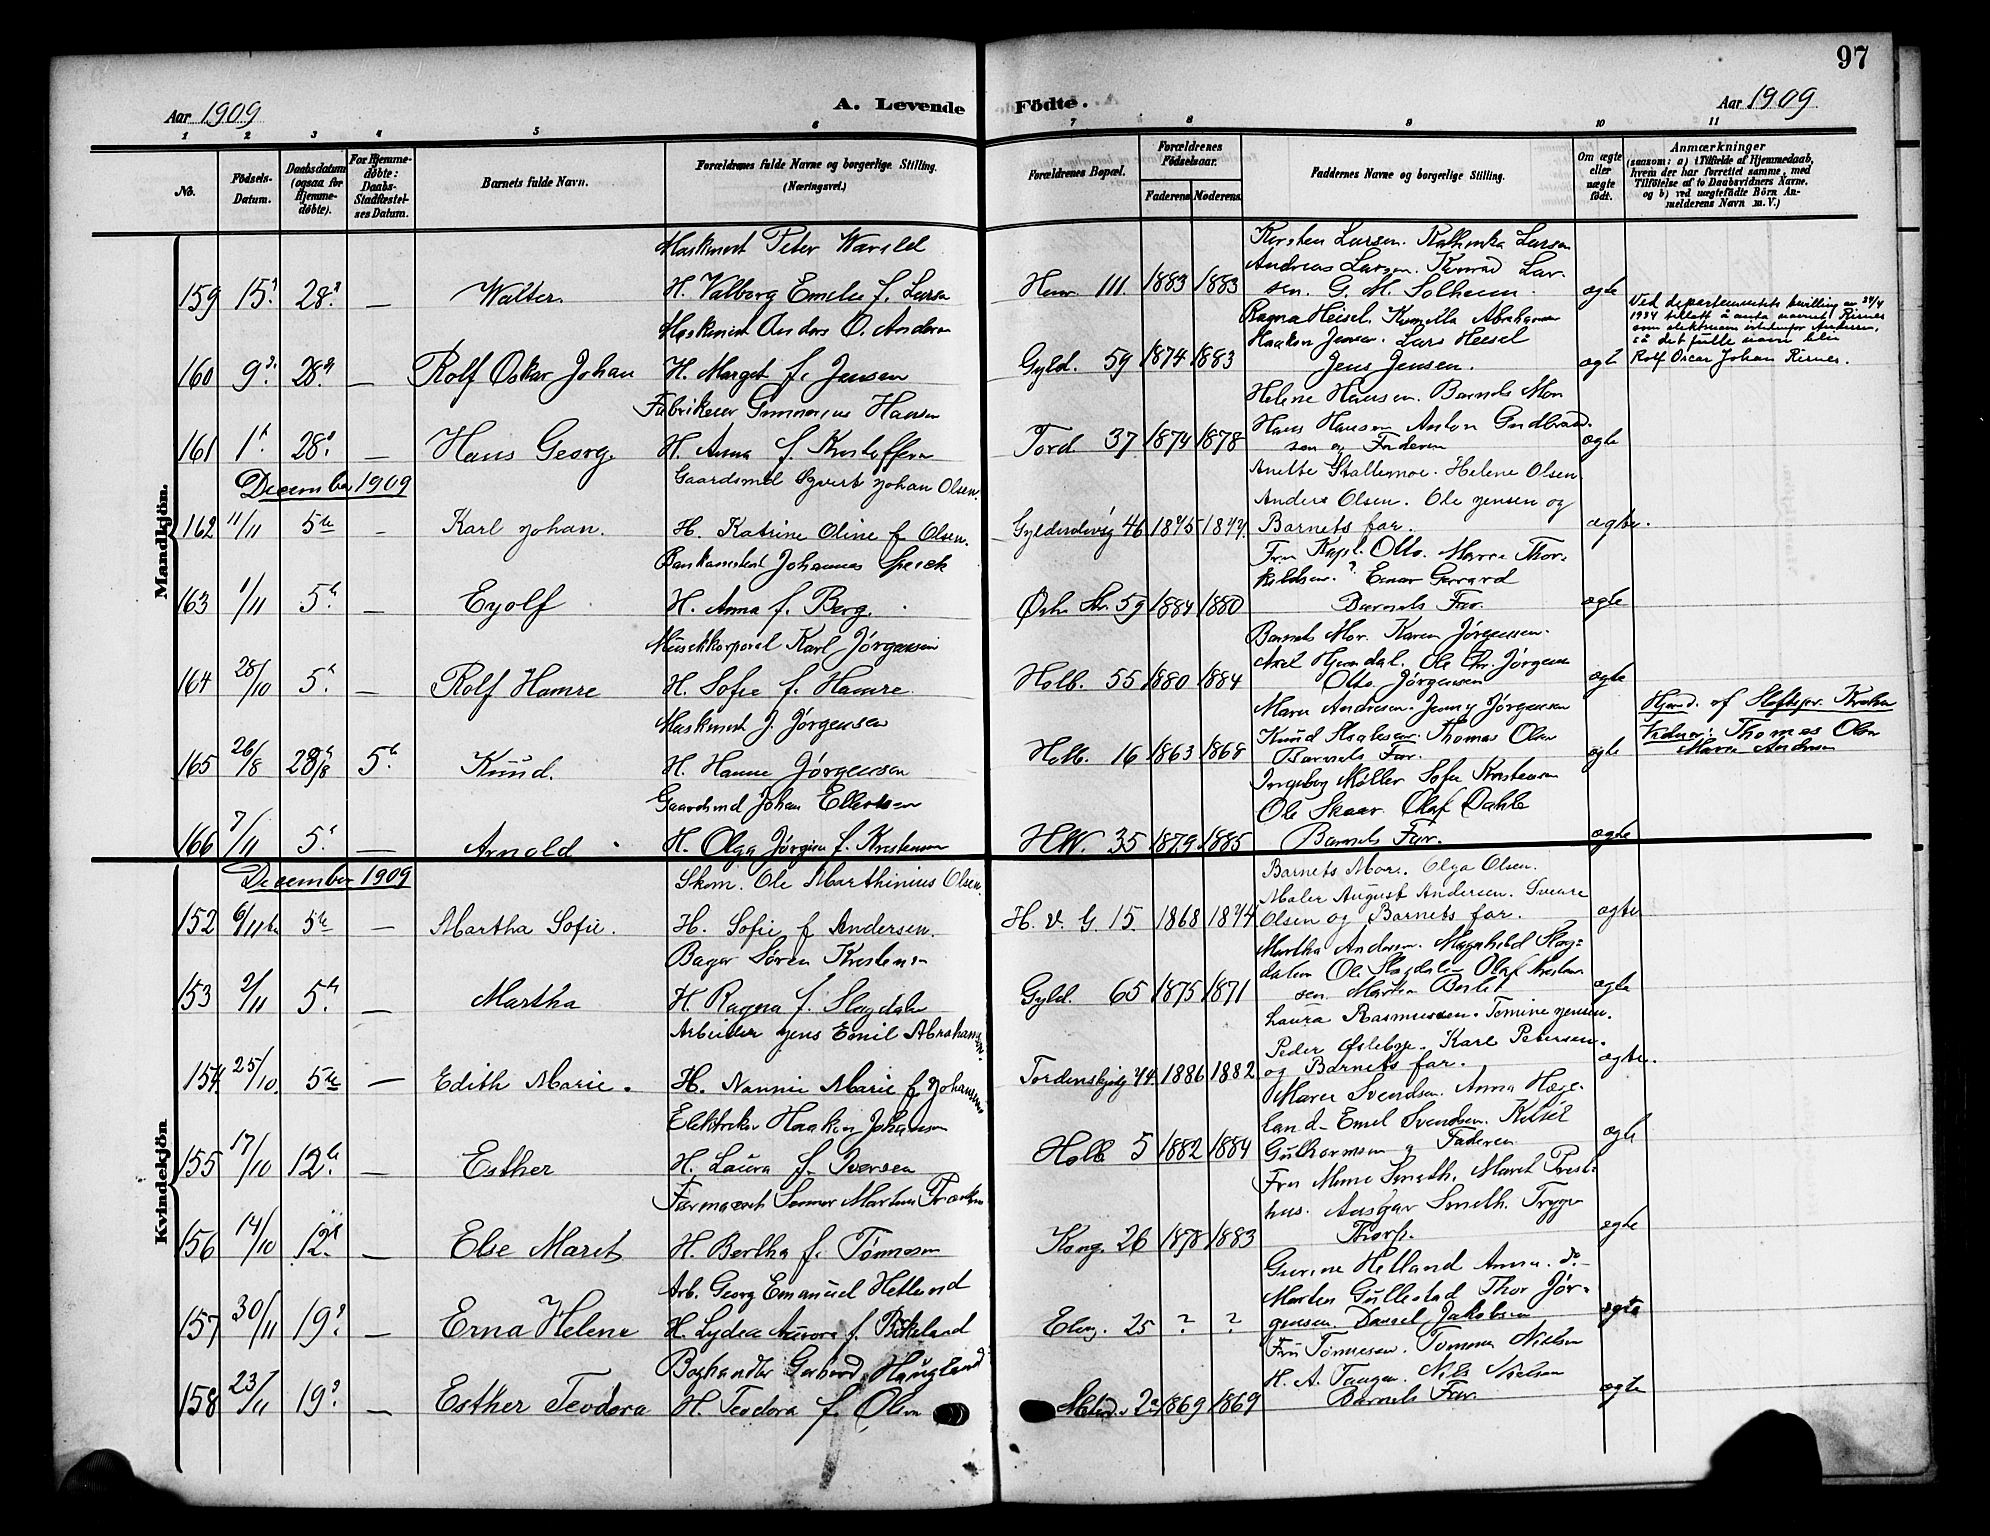 97
Aar 1909
A. Levende Födte.
Aar 1909
1 2 3 4 5 6 7 8 9 10 11
No.
Födsels-Datum.
Daabsdatum (ogsaa for Hjemme-döbte).
For Hjemme-döbte: Daabs-Stadfæstel-ses Datum.
Barnets fulde Navn.
Forældrenes fulde Navne og borgerlige Stilling. (Næringsvei.)
Forældrenes Bopæl.
Forældrenes Födselsaar.
Faderens Moderens
Faddernes Navne og borgerlige Stilling.
Om ægte eller uægte födt.
Anmærkninger
(saasom: a) i Tilfælde af Hjemmedaab, hvem der har forrettet samme, med Tilföielse af to Daabsvidners Navne, og b) ved uægtefödte Börn An-melderens Navn m. V.)
Mandkjön.
Maskinist Peter Warild
Karsten Larsen. Kathinka Larsen
Andreas Larsen. Konrad Lar-
159 15. 28. — Walter. H. Valborg Emelie f. Larsen 111. 1883 1883 sen. G. M. Solheim. ægte
Maskinist Anders O. Andersen
Ragna Heisel. Kamilla Abrahamsen
Haakon Jensen. Lars Heisel
160 9. 28. — Rolf Oskar Johan H. Marget f. Jensen Gyld. 59 1874 1883 Jens Jensen. ægte
Ved departementets bevilling av 24/4
1934 tillatt å anta navnet Risnes
som slektsnavn istedenfor Andersen,
så det fulle navn blir
Rolf Oscar Johan Risnes.
Fabrikeier Gunnerius Hansen
Helene Hansen. Barnets Mor
Hans Hansen Anton Gudbrand-
161 1. 28. — Hans Georg H. Anna f. Kristoffersen Tord. 37 1874 1878 sen og Faderen ægte
December 1909
Gaardsmd Syvert Johan Olsen.
Anette Stallemoe. Helene Olsen
Anders Olsen. Ole Jensen og
162 11/11 5te - Karl Johan. H. Katrine Oline f. Olsen. 46 1875 1877. Barnets far. ægte.
Bankassistent Johannes
Fru Kapt. Otto. Marie Thor-
kildsen. Einar Gerrard
163 1/11 5. — Eyolf H. Anna f. Berg. Østr. Str. 59 1884 1880 Barnets Far. ægte
Musikkorporal Karl Jørgensen
Barnets Mor. Karen Jørgensen.
Axel Hjemdal. Ole Chr. Jørgensen
164 28/10 5. — Rolf Hamre H. Sofie f. Hamre Holb. 55 1880 1884 Otto Jørgensen ægte
Maskinist J. Jørgensen
Marie Andresen. Jenny Jørgensen
Knud Thomas Olsen
165 26/8 28/8 5. Knud. H. Hanne Jørgensen Holb. 16 1863 1868 Barnets Far. ægte
Hjmd. af
Vidner: Thomas Olsen
Marie Andersen
Gaardsmd Johan Ellertsen
Ingeborg Møller Sofie Kristensen
Ole Skaar. Olaf Dahle
166 7/11 5. — Arnold H. Olga Jørgine f. Kristensen H.W. 35 1879 1885 Barnets Far. ægte
Kvindekjön
December 1909
Skom. Ole Marthinius Olsen.
Barnets Mor. Olga Olsen.
Maler August Andersen. Sverre
152 6/11 5te — Martha Sofie. H. Sofie f Andersen. H. V. G. 15. 1868 1874 Olsen og Barnets far. ægte
Bager Søren Kristensen
Martha Andersen. Magnhild Slog-
dalen Ole Slogdalen Olaf Kristen-
153 2/11 5. — Martha H. Ragna f. Slogdalen Gyld. 65 1875 1871 sen. ægte
Arbeider Jens Emil Abrahamsen.
Laura Rasmussen. Tomine Jensen.
Peder Østebye. Karl Petersen.
154. 25/10. 5te — Edith Marie. H. Nannie Marie f Johansen Tordenskjolg 44. 1886 1882 og Barnets far. ægte.
Elektriker Haakon Johansen
Marie Svendsen. Anna Hæge-
land. Emil Svendsen. Ketil
155 17/10 12. — Esther H. Laura f. Iversen Holb 5 1882 1884 Guthormsen og Faderen ægte
Farmaceut
Fru Mimi Smith. Marit Prest-
hus. Ansgar Smith. Trygve
156 14/10 12. — Else Marit H. Bertha f. Tønnesen Kong. 26 1878 1883 Thorp. ægte
Arb. Georg Emanuel Hetland
Gurine Helland Anna do-
Marten Gullestad Thor Jør-
157 30/11 19. — Erna Helene H. Lydia Aurora f. Birkeland Elvg. 25 ? ? gensen. Daniel Jakobsen ægte
Boghandler Gerhard Haugland
Fru Tønnesen. Tomine Nielsen
H. A. Tangen. Nils Nielsen
158 23/11 19. — Esther Teodora H. Teodora f. Olsen 1869 1869 Barnets Far. ægte